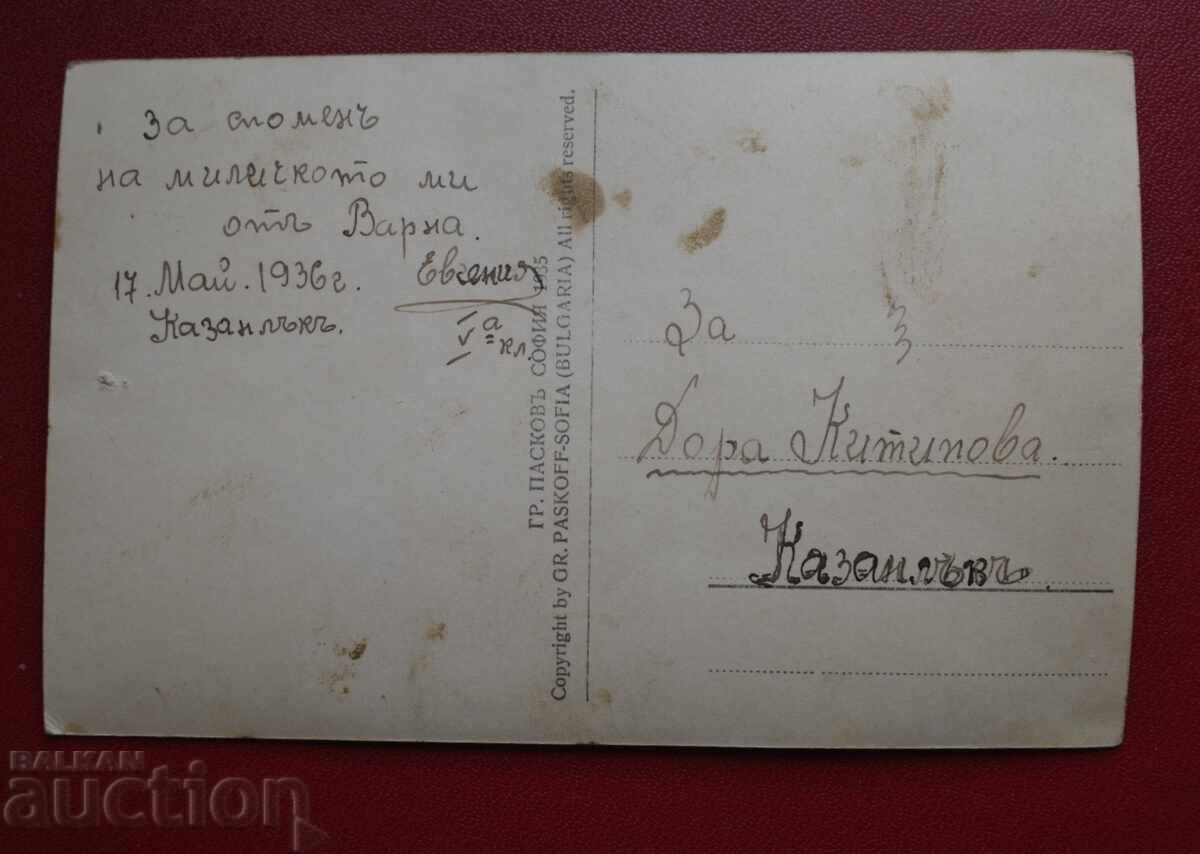 За споменъ
на миличкото ми
отъ Варна.
17. Май. 1936 г. Евгения
Казанлъкъ. V а кл.
ГР. ПАСКОВЪ СОФИЯ 1935
Copyright by GR. PASKOFF-SOFIA (BULGARIA) All rights reserved.
За З
Дора Китипова.
Казанлъкъ
BALKAN
auction